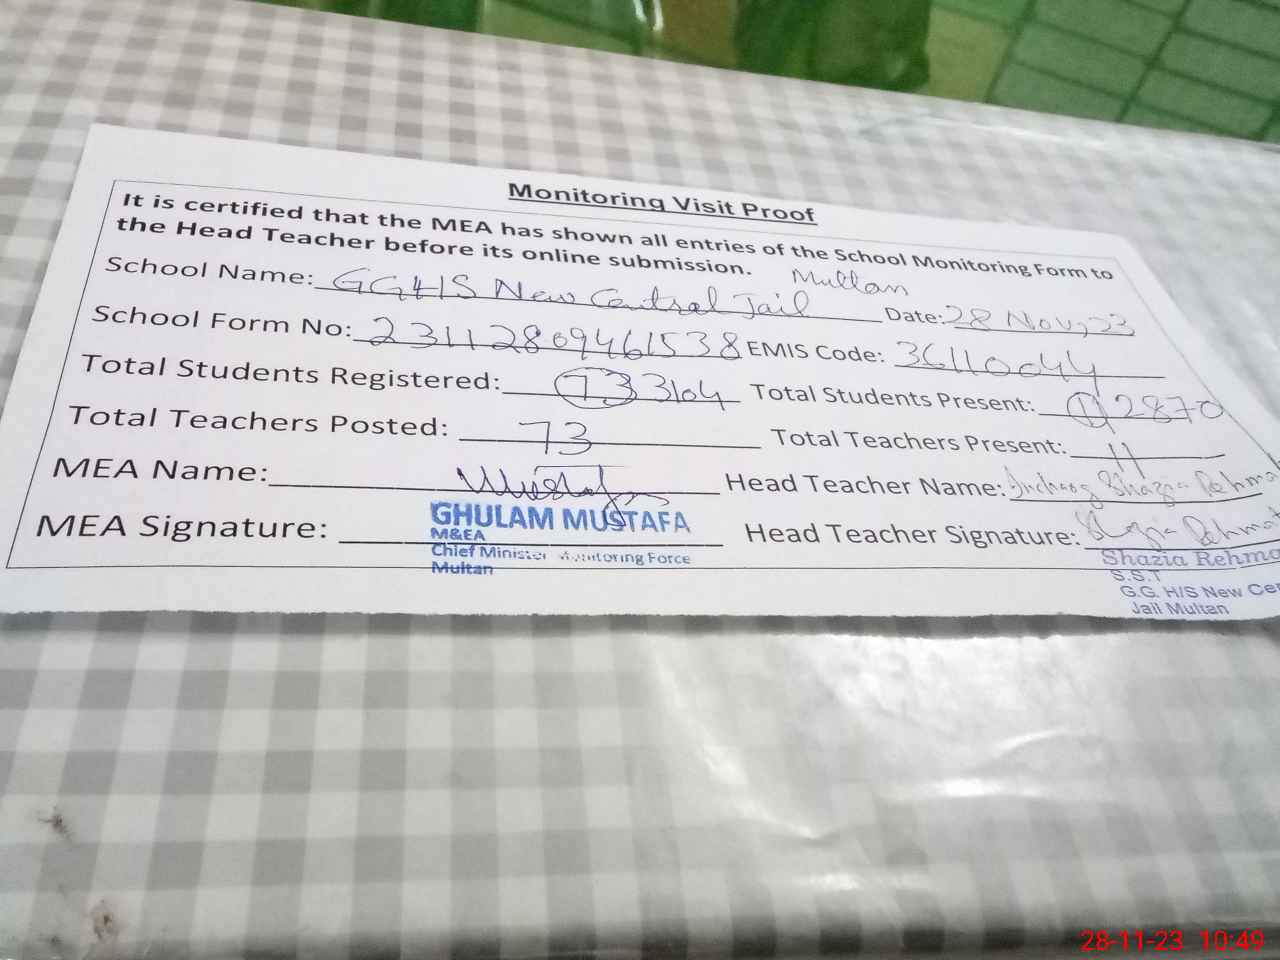 Monitoring Visit Proof
It is certified that the MEA has shown all entries of the School Monitoring Form to
the Head Teacher before its online submission.
Multan
School Name: GGHS New Central Jail Date: 28 Nov, 23
School Form No: 23112809461538 EMIS Code: 36110044
Total Students Registered: 73 3104 Total Students Present: 11 2870
Total Teachers Posted: 73 Total Teachers Present: 11
MEA Name: Mustafa Head Teacher Name: Incharg Shazia Rehma
MEA Signature: Head Teacher Signature: Shazia Rehma
GHULAM MUSTAFA
M&EA
Chief Minister Monitoring Force
Multan
Shazia Rehma
S.S.T
G.G. H/S New Cen
Jail Multan
28-11-23 10:49